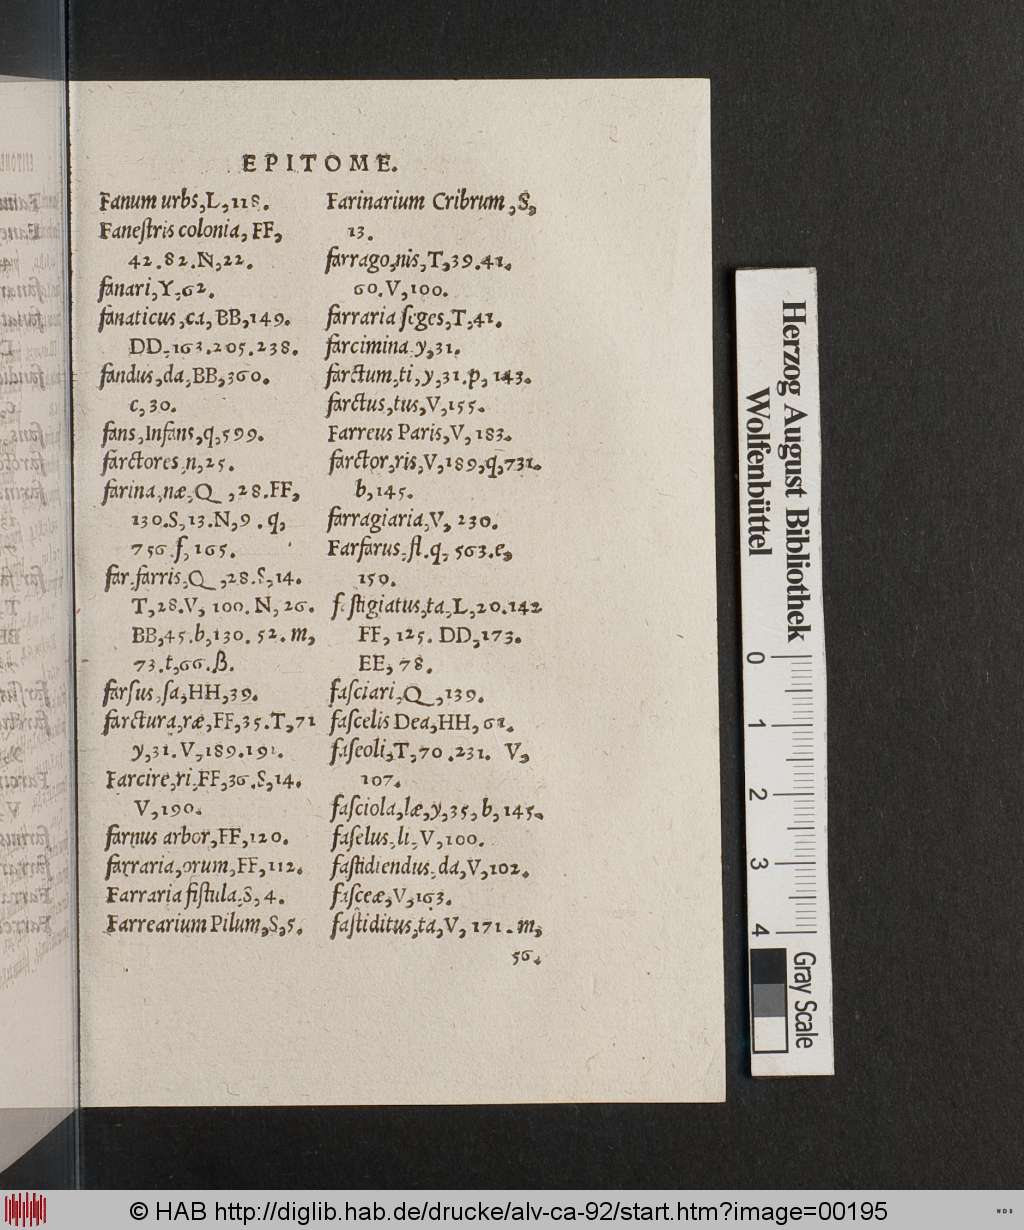 EPITOME.
Fanum urbs, L, 118.
Faneſtris colonia, FF,
42. 82. N, 22.
fanari, Y, 62.
fanaticus, ca, BB, 149.
DD, 163. 205. 238.
fandus, da, BB, 360.
c, 30.
fans, Infans, q, 599.
farctores, n, 25.
farina, næ, Q, 28. FF,
130. S, 13. N, 9. q,
756. f, 165.
far, farris, Q, 28. S, 14.
T, 28. V, 100. N, 26.
BB, 45. b, 130. 52. m,
73. t, 66. ß.
farſus, ſa, HH, 39.
farctura, ræ, FF, 35. T, 71
y, 31. V, 189. 191.
Farcire, ri, FF, 36. S, 14.
V, 190.
farnus arbor, FF, 120.
farraria, orum, FF, 112.
Farraria fiſtula, S, 4.
Farrearium Pilum, S, 5.
Farinarium Cribrum, S,
13.
farrago, nis, T, 39. 41.
60. V, 100.
farraria ſeges, T, 41.
farcimina, y, 31.
farctum, ti, y, 31. p, 143.
farctus, tus, V, 155.
Farreus Paris, V, 183.
farctor, ris, V, 189, q, 731.
b, 145.
farragiaria, V, 230.
Farfarus, fl. q, 563. e,
150.
faſtigiatus, ta, L, 20. 142
FF, 125. DD, 173.
EE, 78.
faſciari, Q, 139.
faſcelis Dea, HH, 61.
faſeoli, T, 70. 231. V,
107.
faſciola, læ, y, 35, b, 145.
faſelus, li, V, 100.
faſtidiendus, da, V, 102.
faſceæ, V, 163.
faſtiditus, ta, V, 171. m,
56.
Herzog August Bibliothek
Wolfenbüttel
0 1 2 3 4
Gray Scale
© HAB http://diglib.hab.de/drucke/alv-ca-92/start.htm?image=00195